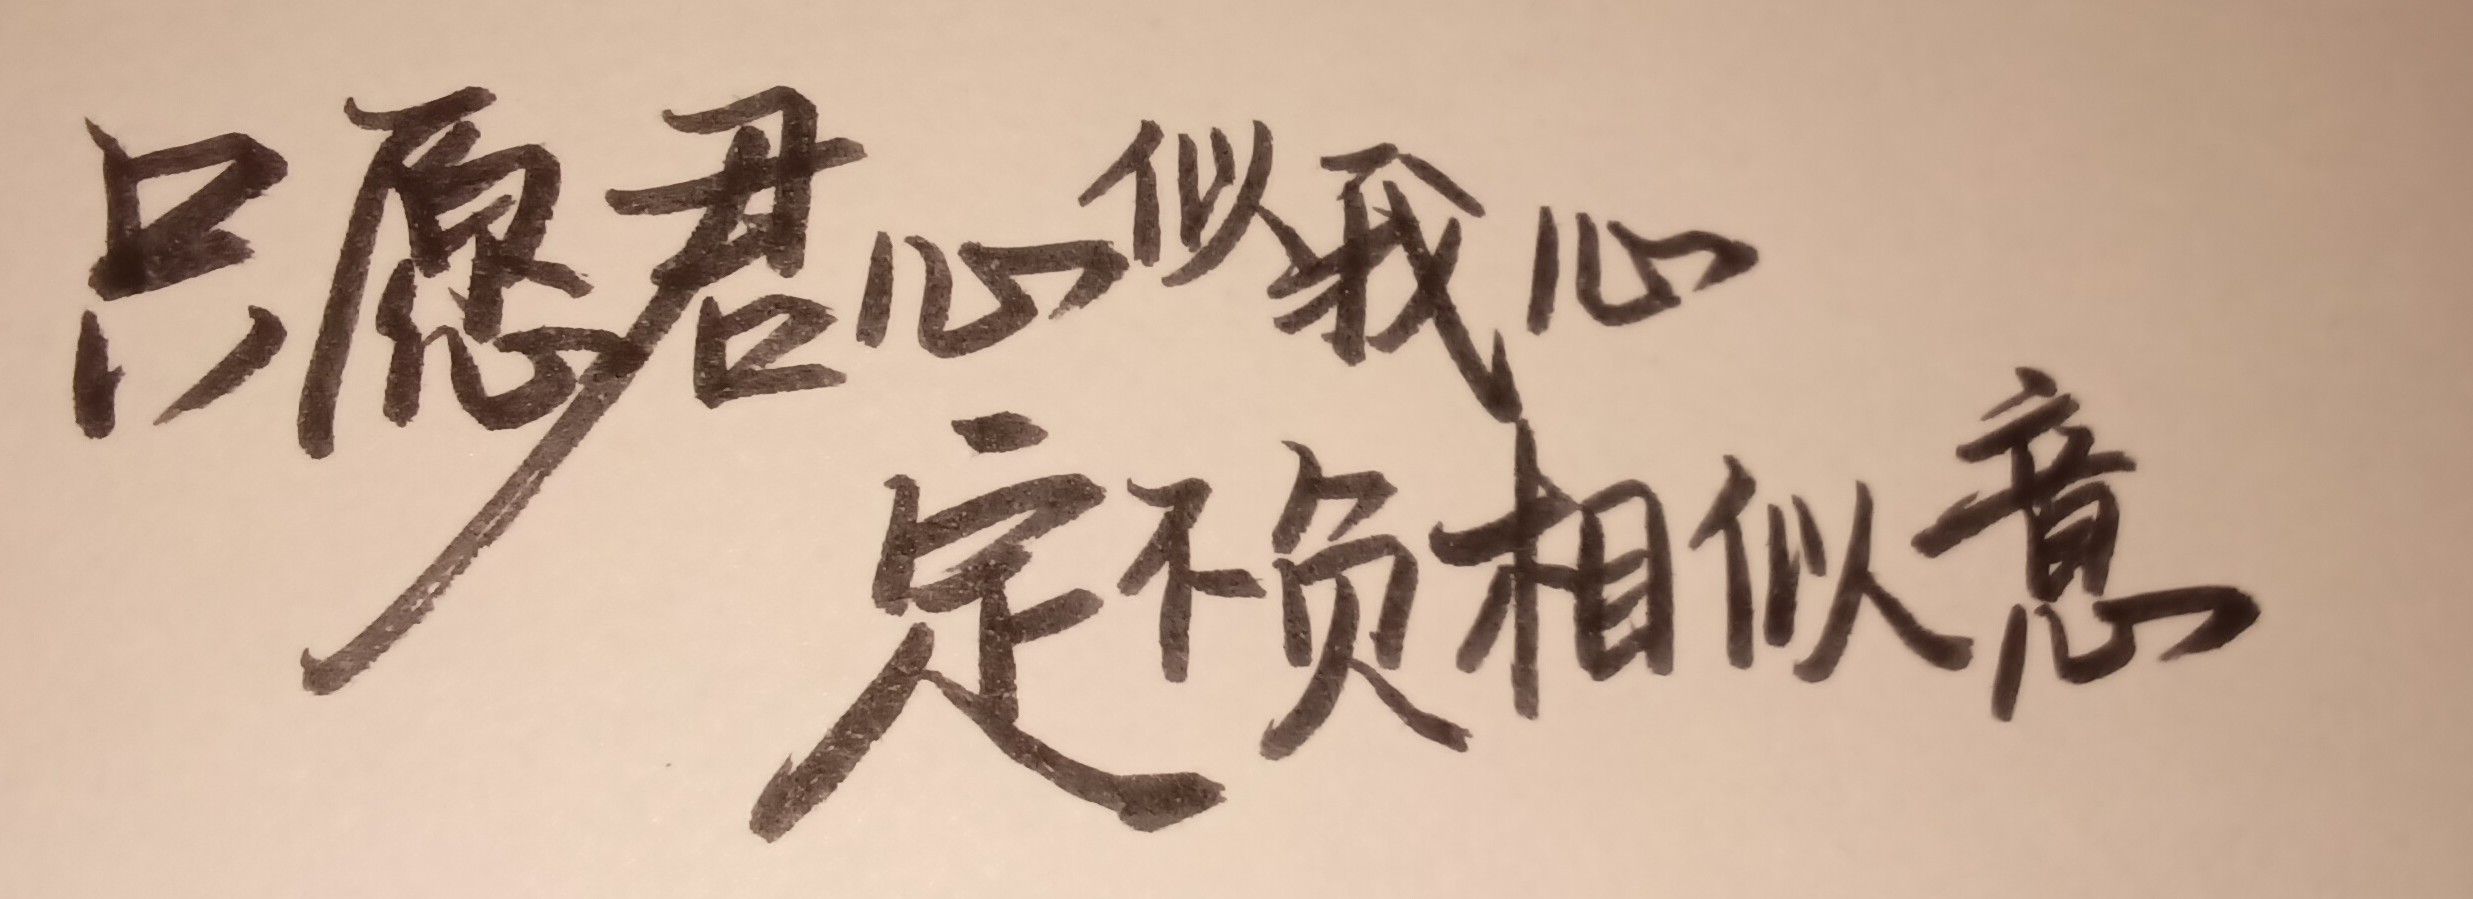 只愿君心似我心
定不负相似意